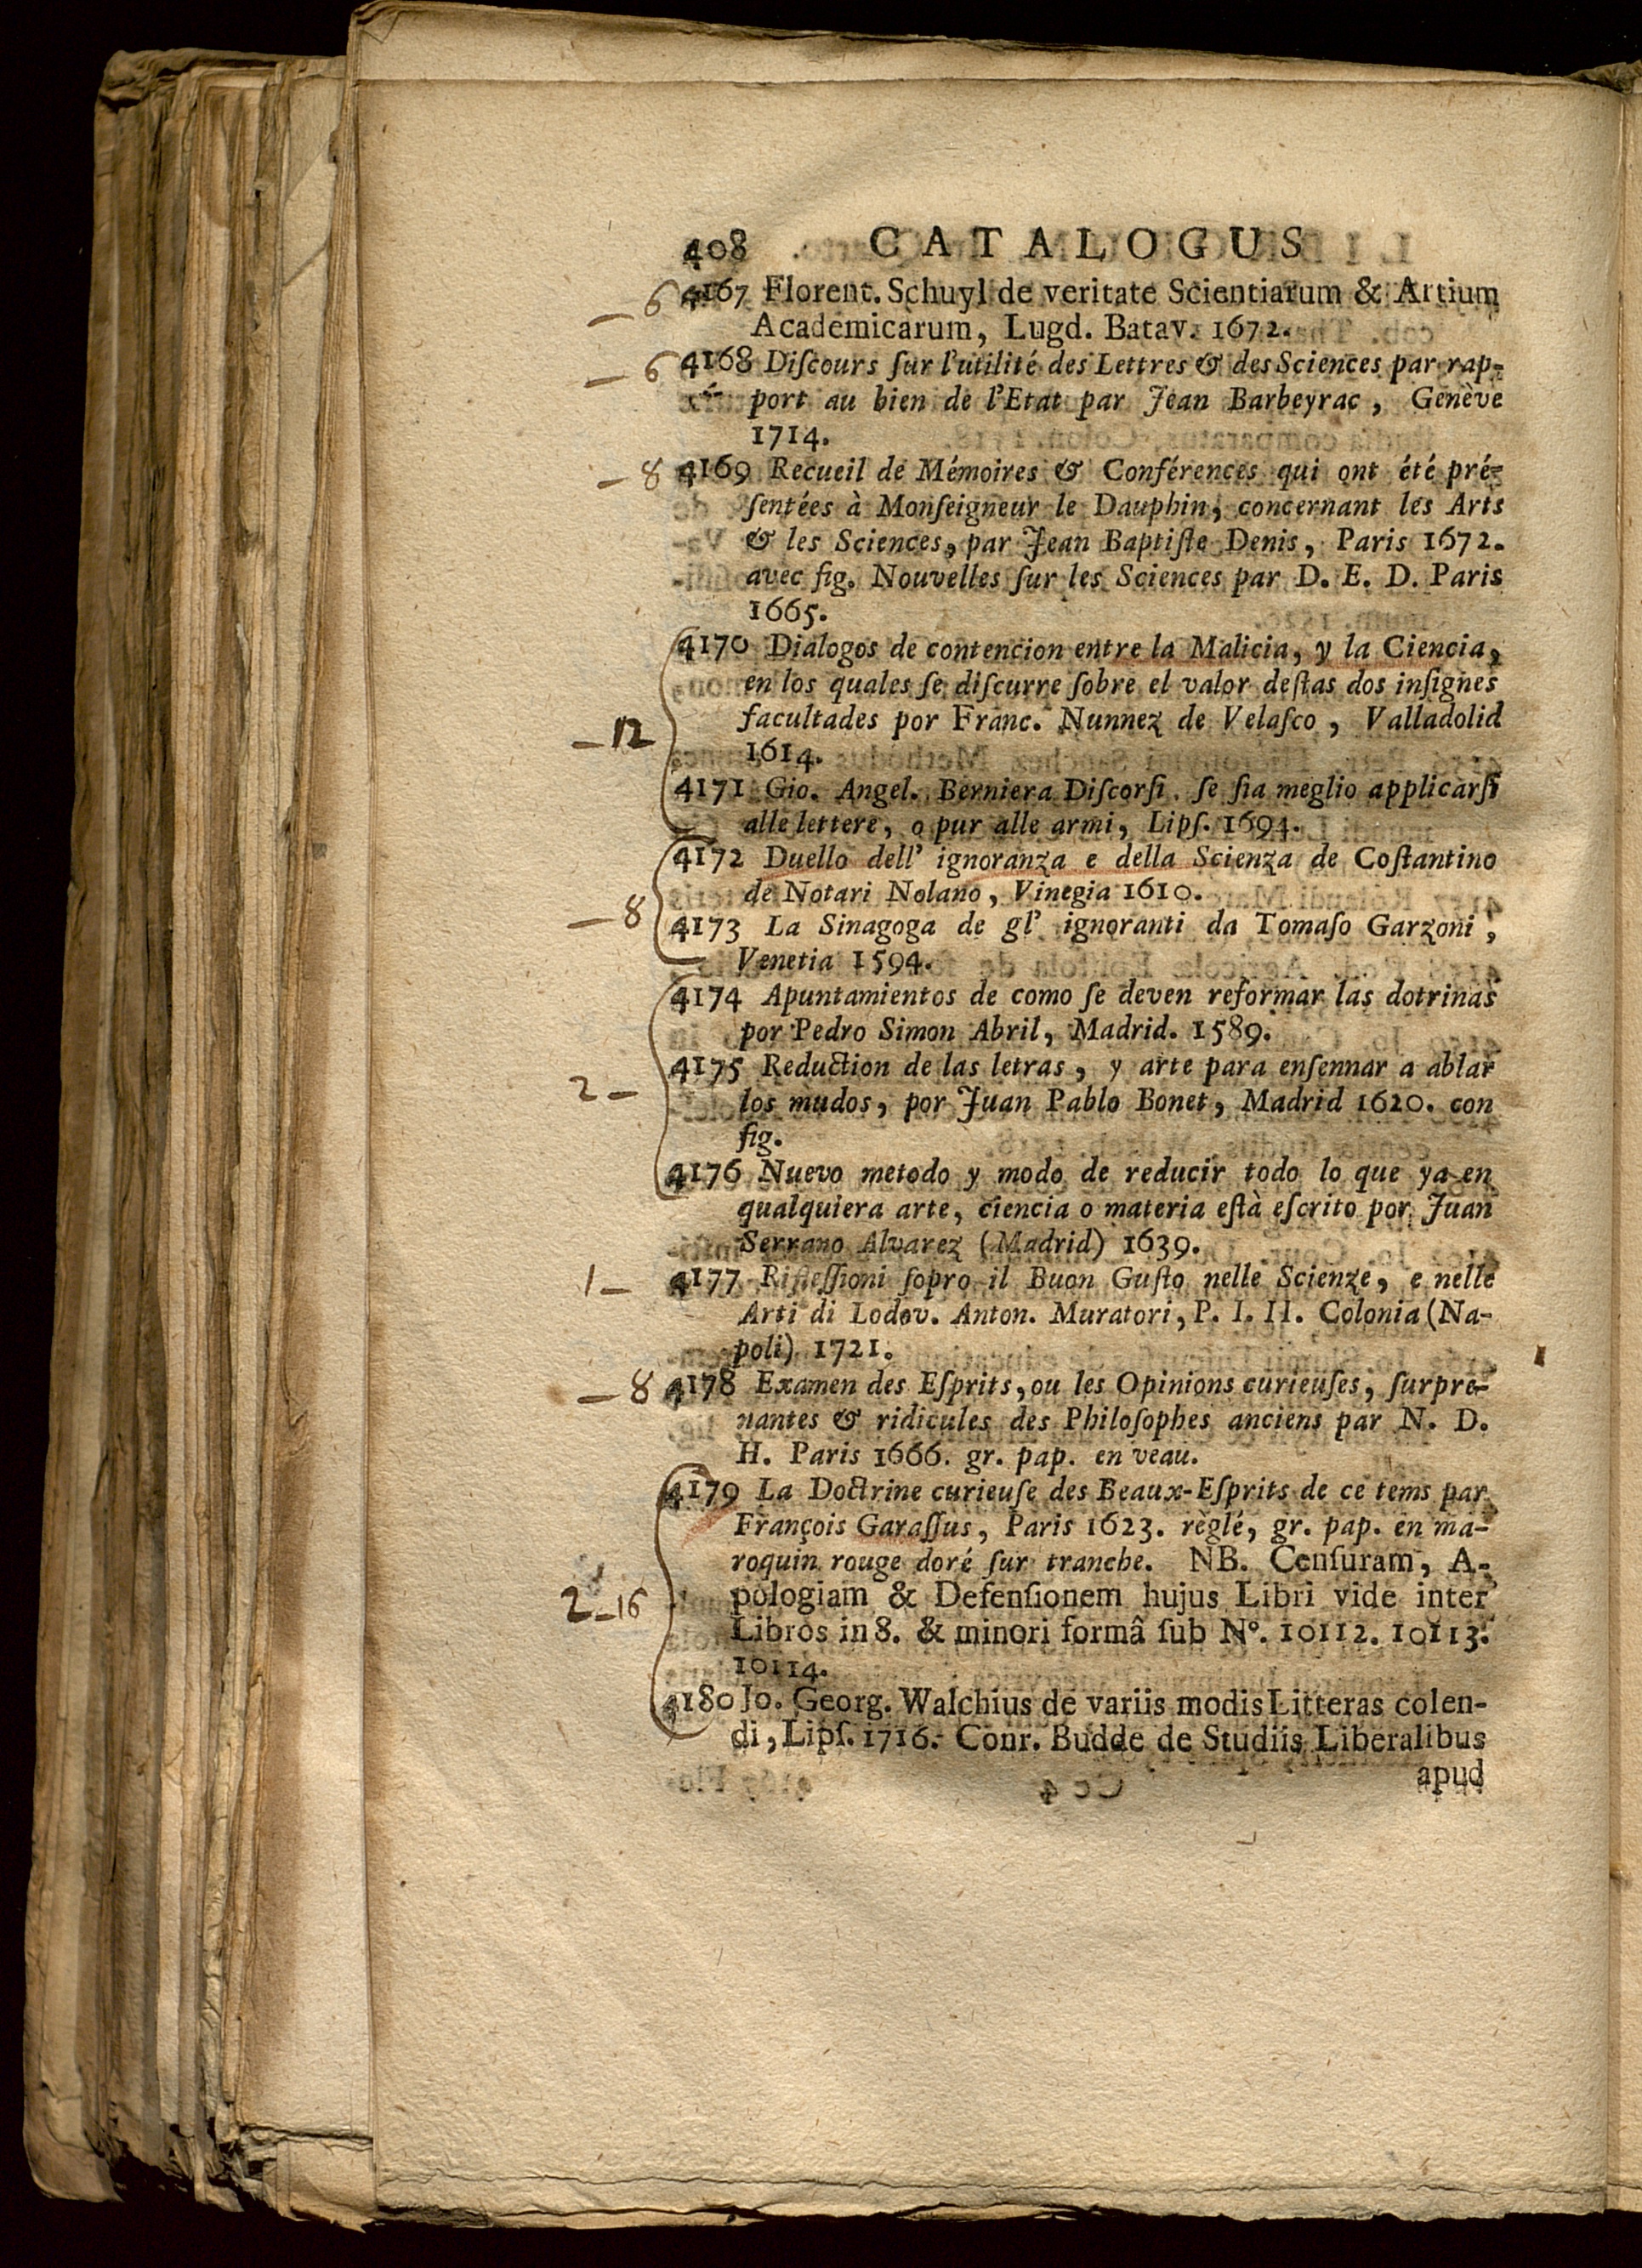 408 CATALOGUS
– 6 4167 Florent. Schuyl de veritate Scientiarum & Artium
Academicarum, Lugd. Batav. 1672.
– 6 4168 Diſcours ſur l'utilité des Lettres & des Sciences par rap-
port au bien de l'Etat par Jean Barbeyrac, Genève
1714.
– 8 4169 Recueil de Mémoires & Conférences qui ont été pré-
ſentées à Monſeigneur le Dauphin, concernant les Arts
& les Sciences, par Jean Baptiſte Denis, Paris 1672.
avec fig. Nouvelles ſur les Sciences par D. E. D. Paris
1665.
4170 Dialogos de contencion entre la Malicia, y la Ciencia,
en los quales ſe diſcurre ſobre el valor deſtas dos inſignes
facultades por Franc. Nunnez de Velaſco, Valladolid
– 12 1614.
4171 Gio. Angel. Berniera Diſcorſi ſe ſia meglio applicarſi
alle lettere, o pur alle armi, Lipſ. 1694.
4172 Duello dell' ignoranza e della Scienza de Coſtantino
de Notari Nolano, Vinegia 1610.
– 8 4173 La Sinagoga de gl' ignoranti da Tomaſo Garzoni,
Venetia 1594.
4174 Apuntamientos de como ſe deven reformar las dotrinas
por Pedro Simon Abril, Madrid. 1589.
4175 Reduction de las letras, y arte para enſennar a ablar
2 – los mudos, por Juan Pablo Bonet, Madrid 1620. con
fig.
4176 Nuevo metodo y modo de reducir todo lo que ya en
qualquiera arte, ciencia o materia eſtà eſcrito por Juan
Serrano Alvarez (Madrid) 1639.
1 – 4177 Rifleſſioni ſopro il Buon Guſto nelle Scienze, e nelle
Arti di Lodov. Anton. Muratori, P. I. II. Colonia (Na-
poli) 1721.
– 8 4178 Examen des Eſprits, ou les Opinions curieuſes, ſurpre-
nantes & ridicules des Philoſophes anciens par N. D.
H. Paris 1666. gr. pap. en veau.
4179 La Doctrine curieuſe des Beaux-Eſprits de ce tems par
François Garaſſus, Paris 1623. règlé, gr. pap. en ma-
roquin rouge doré ſur tranche. NB. Cenſuram, A-
2 – 16 pologiam & Defenſionem hujus Libri vide inter
Libros in 8. & minori formâ ſub N°. 10112. 10113.
10114.
4180 Jo. Georg. Walchius de variis modis Litteras colen-
di, Lipſ. 1716. Conr. Budde de Studiis Liberalibus
apud